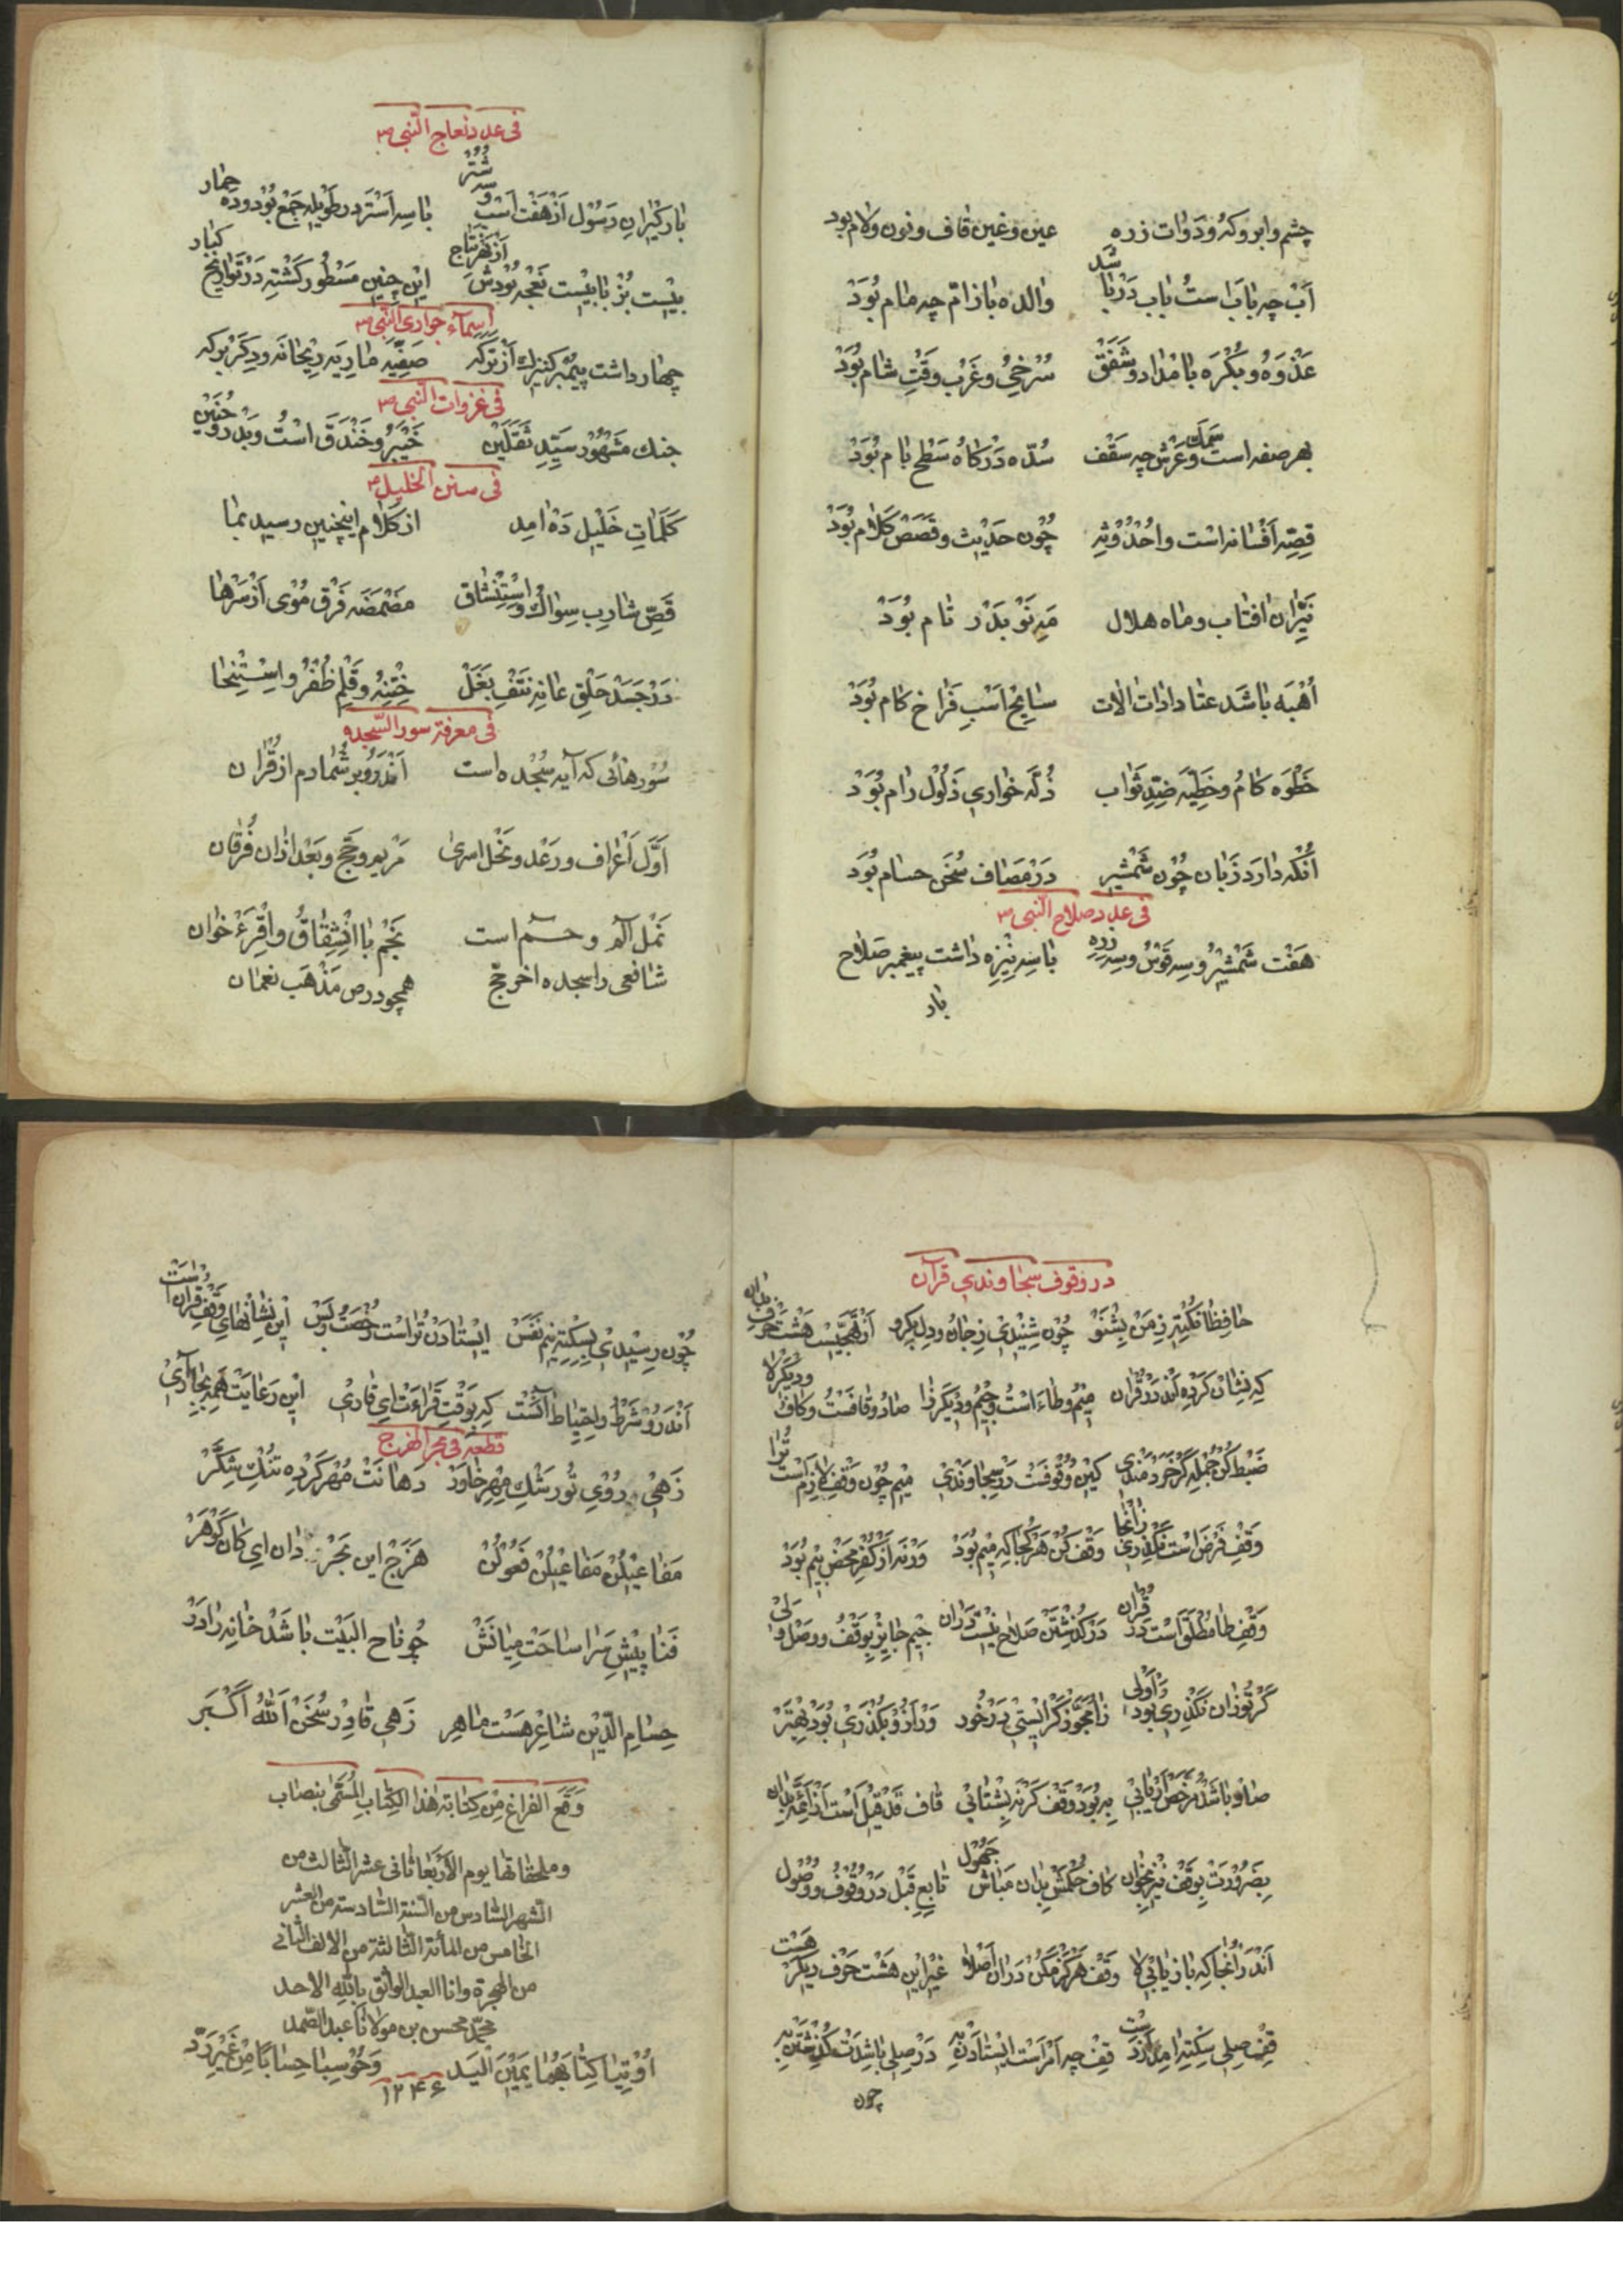 چشم و ابرو و که و دوات زره عین و غین قاف و نون و لام بود
آب چه باب است باب دریا شد والده باز ام چه مام بود
غدوه و بکره بامداد و شفق سرخی و غرب وقت شام بود
بهر صفه است و عرش چه سقف سمک سده درکاه سطح بام بود
قصه افسانه است و احدوثه چون حدیث و قصص کلام بود
نیران افتاب و ماه هلال مه نو بدر تام بود
اهبه باشد عتاد ادات الات سابح اسب فراخ کام بود
خطوه کام و خطیه ضد ثواب ذله خواری ذلول رام بود
انکه دارد زبان چون شمشیر در مصاف سخن حسام بود
فی عدد صلاح النبی ص
هفت شمشیر و سه قوس و سه زره با سه نیزه داشت پیغمبر صلاح
بار
فی عدد نعاج النبی ص
بارکیران رسول از هفت اسب و سه شتر با سه استر در طویله جمع بود و ده حمار
بیست بز با بیست نعجه بودش از بهر نتاج این چنین مسطور کشته در تواریخ کبار
اسماء جواری النبی ص
چهار داشت پیمبر کنیزک از ترکه صفیه ماریه ریحانه و دکر برکه
فی غزوات النبی ص
جنك مشهور سید ثقلین خیبر و خندق است و بدر و حنین
فی سنن الخلیل ص
کلمات خلیل ده امد از کلام اینچنین رسید بما
قص شارب سواك و استنشاق مضمضه فرق موی از سرها
در جسد حلق عانه نتف بغل ختنه و قلم ظفر و استنجا
فی معرفة سور السجده
سورهائی که آیه سجده است اندرو بر شمارم از قران
اول اعراف و رعد و نحل اسری مریم و حج و بعد ازان فرقان
نمل الم و حم است نجم با انشقاق و اقرء خوان
شافعی را سجده اخر حج همچو در ص مذهب نعمان
در وقوف سجاوندی قرآن
حافظا نکته ز من بشنو چون شنیدی ز جان و دل بکرو از تهجیست هشت حرف بدان
که نشان کرده اند در قران میم و طاءاست و جیم و دیکر زا صاد و قافست و کاف و دیکر لا
ضبط کن جمله کر خردمندی کین وقوفست در سجاوندی میم چون وقف لازم است ترا
وقف فرض است نکذری زانجا وقف کن هر کجا که میم بود ورنه از کفر محض بیم بود
وقف طا مطلق است در قران در کذشتن صلاح نیست دران جیم جایز بوقف و وصل ولی
کر تو زان نکذری بود اولی زا مجوز کر ایستی در خود ور ازو بکذری بود بهتر
صاد باشد مرخص اریابی به بود وقف کر نه بشتابی قاف قد قیل است از ائمه بدان
بضرورت بوقف نیز مخوان کاف حکمش بدان مباش جهول تابع قبل در وقوف و وصول
اندرانجا که باز یابی لا وقف هرکز مکن دران اصلا غیر این هشت حرف دیکر هست
قف صلی سکته امد از دست قف چه امر است ایستادن به در صلی باشدت کذشتن به
چون
چون رسیدی بسکته نیم نفس ایستادن تراست رخصت و بس این نشانهای وقف قران است
اندرو شرط و احتیاط آنست که بوقت قراءت ای قاری این رعایت همه بجا آری
قطعه فی بحر الهزج
زهی روی تو رشك مهر خاور دهانت مهر کرده تنك شکر
مفاعیلن مفاعیلن فعولن هزج این بحر دان ای کان کوهر
فنا پیش سرا ساحت میانش چو تاح البیت باشد خانه را در
حسام الدین شاعر هست ماهر زهی قادر سخن الله اکبر
وقع الفراغ من کتابة هذا الکتاب المسمی بنصاب
وملحقاتها یوم الاربعا ثانی عشر الثالث من
الشهر السادس من السنة السادسة من العشر
الخامس من المأة الثالثة من الالف الثانی
من الهجرة وانا العبد الواثق بالله الاحد
محمد محسن بن مولانا عبد الصمد
اوتیا کتابهما بیمین الید وحوسبا حسابا من غیر رد
۱۲۴۶